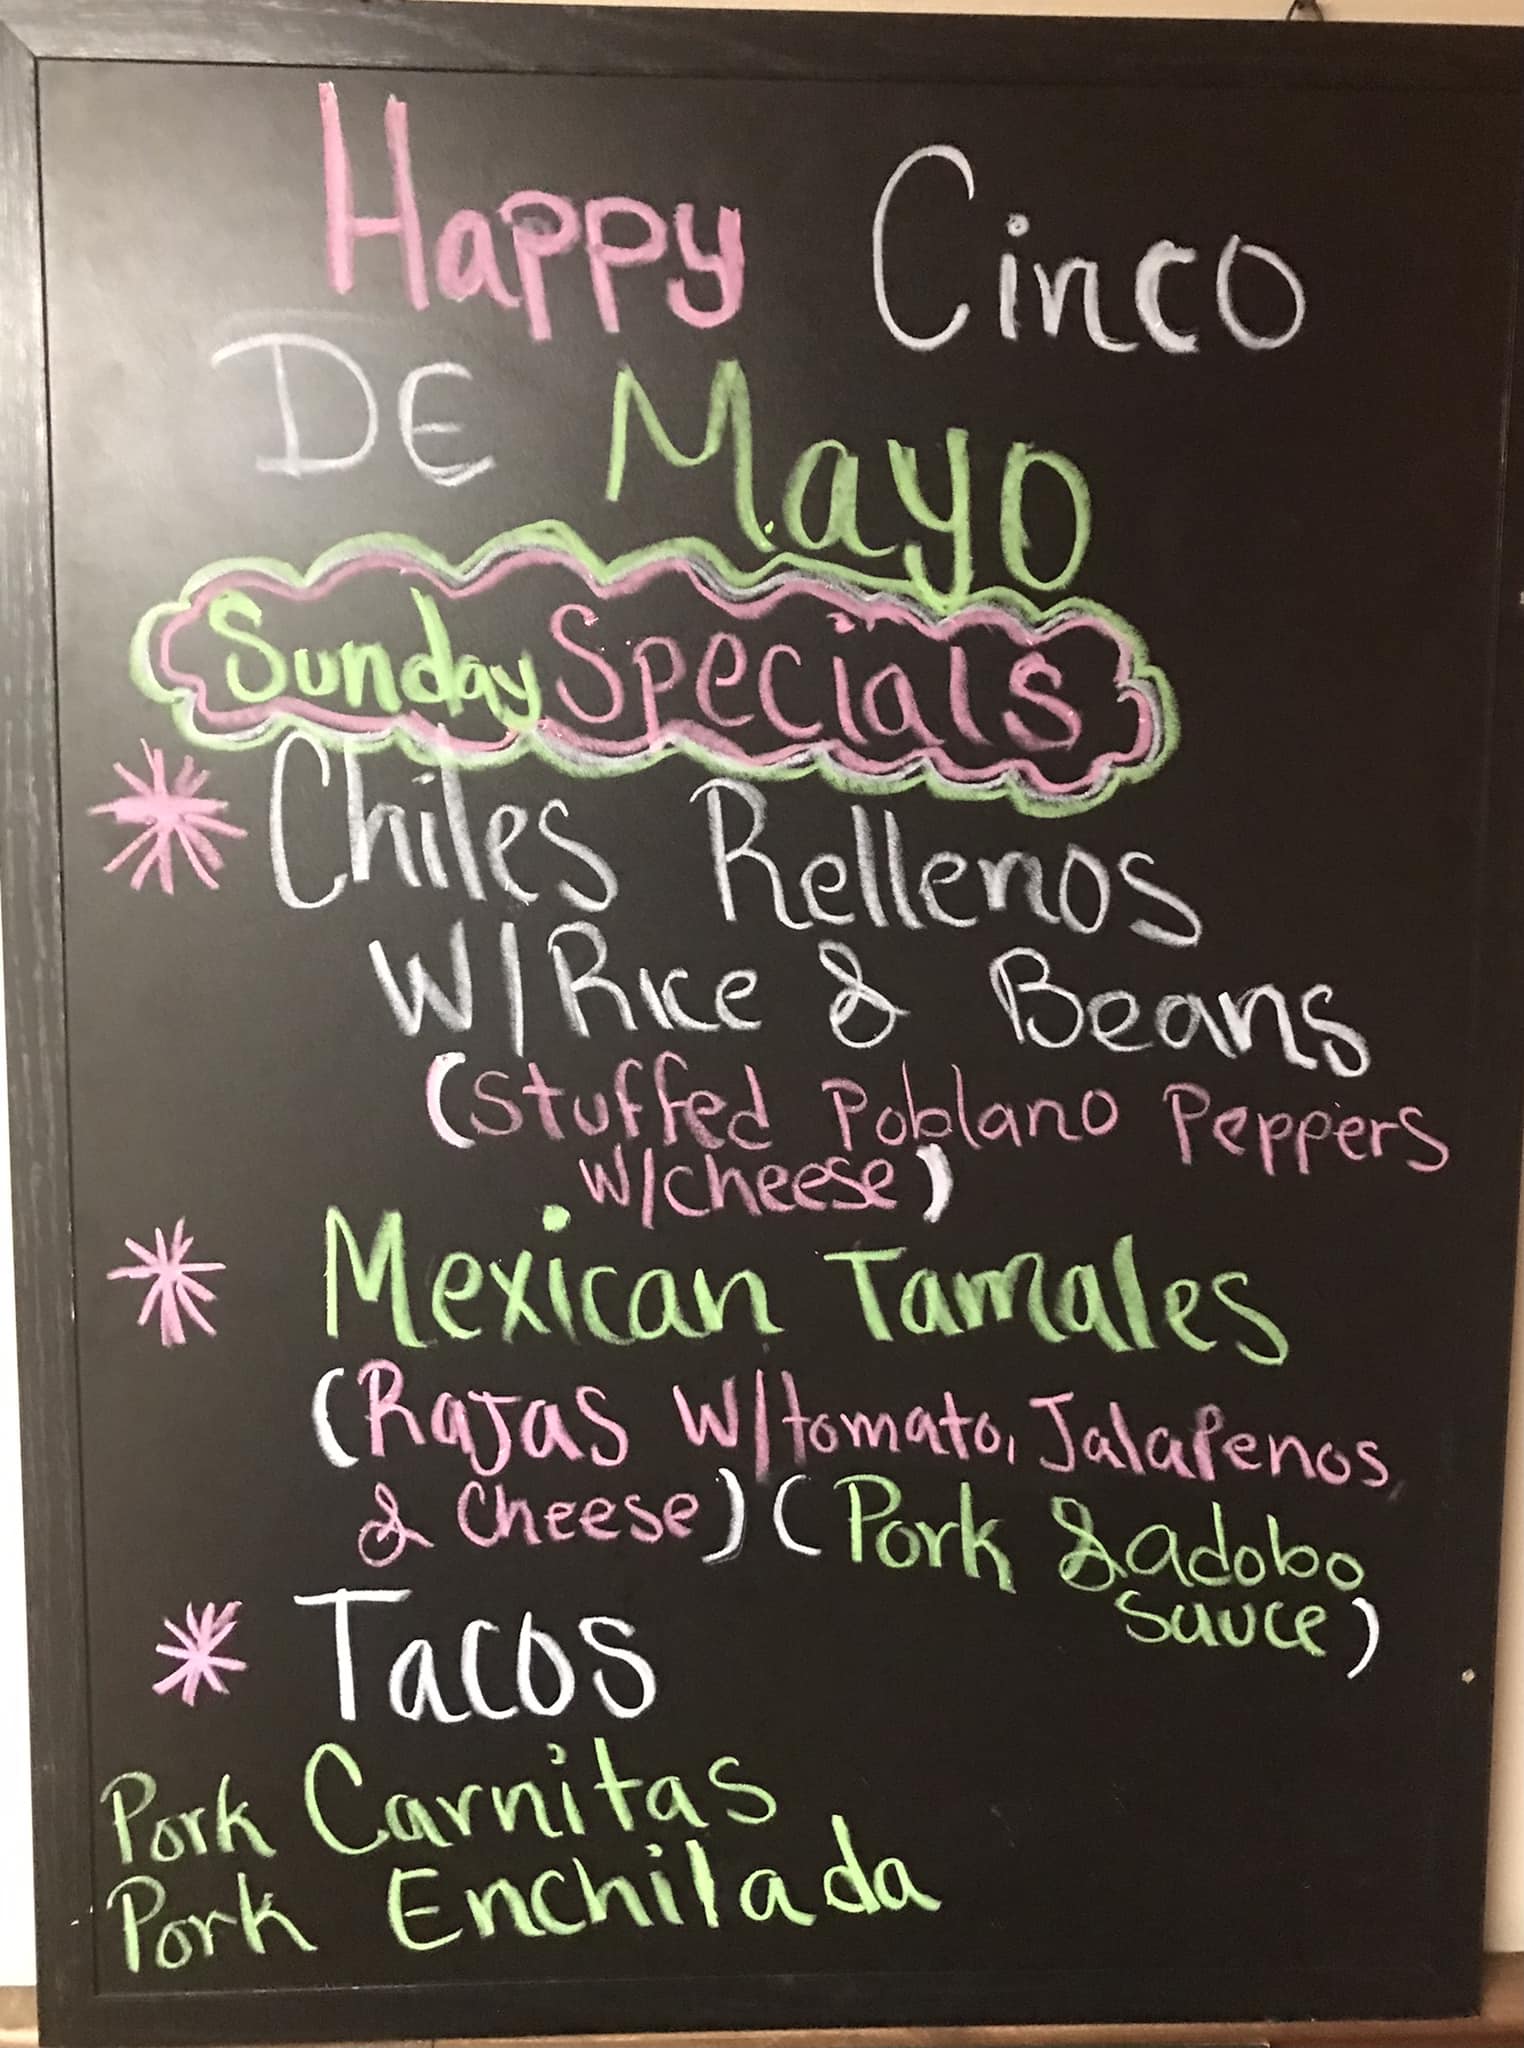 Happy Cinco
DE Mayo
Sunday Specials
* Chiles Rellenos
W/Rice & Beans
(Stuffed Poblano Peppers
W/cheese)
* Mexican Tamales
(Rajas W/tomato, Jalapenos
& Cheese) (Pork & adobo
sauce)
* Tacos
Pork Carnitas
Pork Enchilada